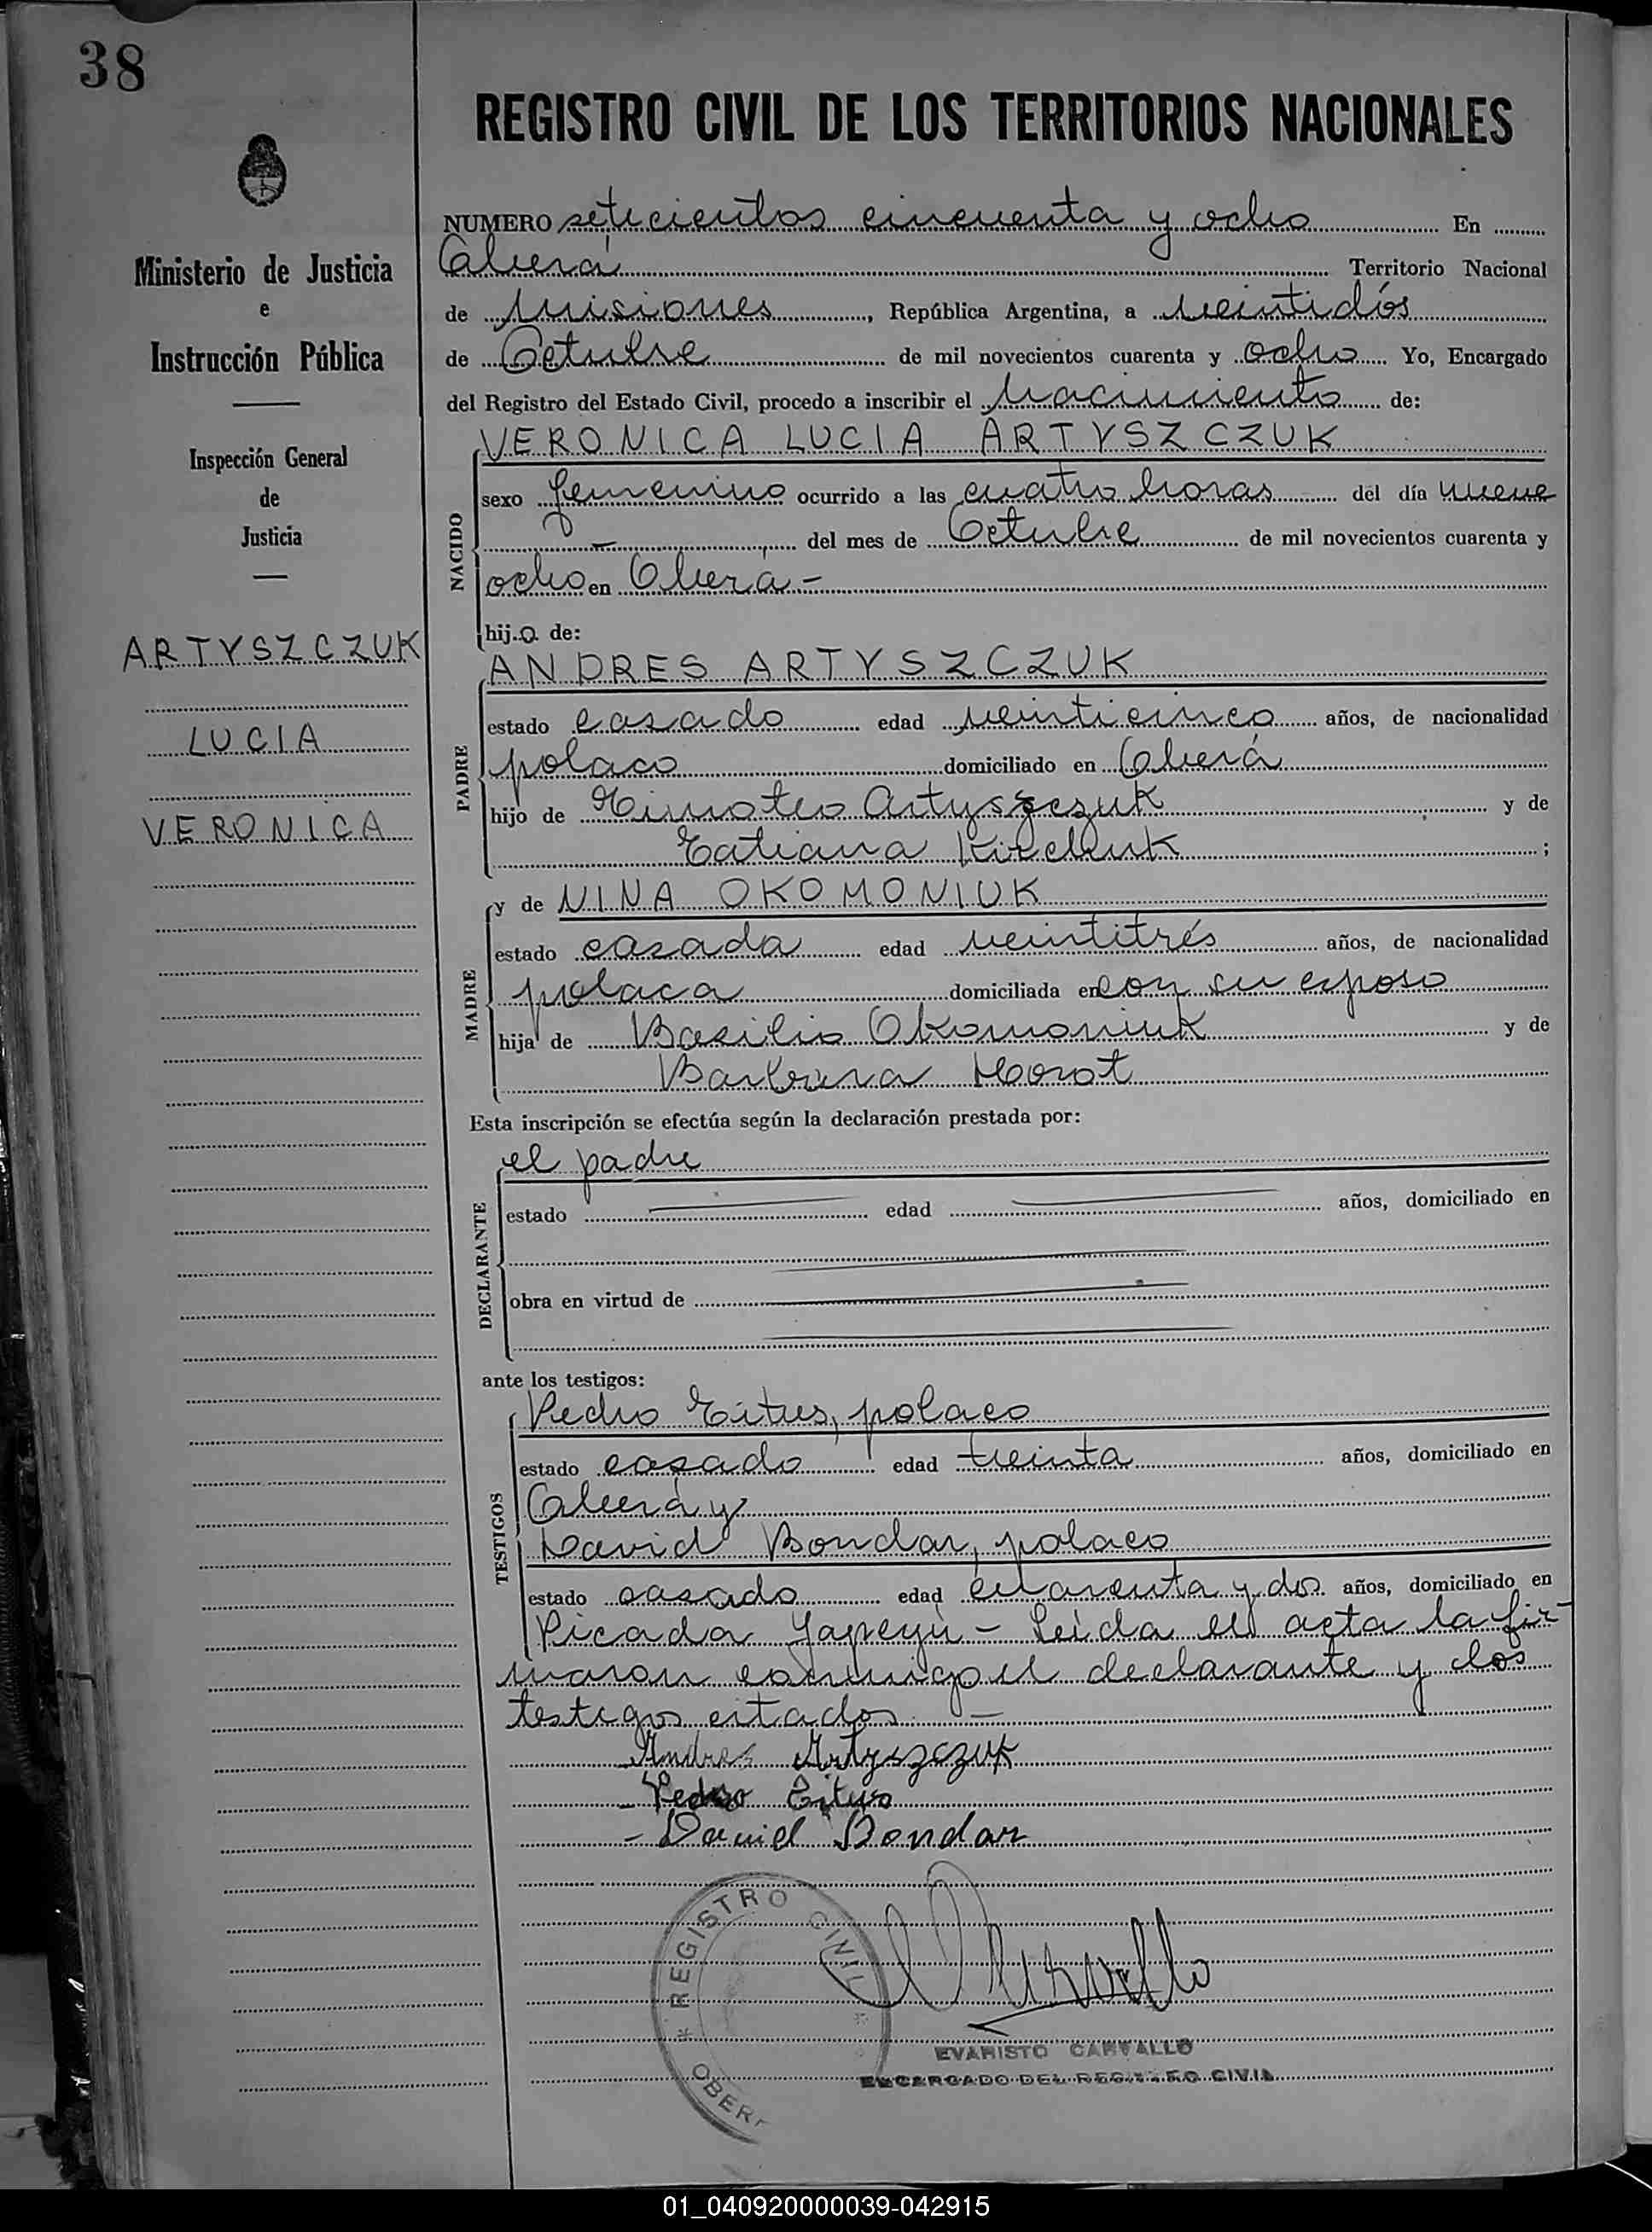 38
REGISTRO CIVIL DE LOS TERRITORIOS NACIONALES
Ministerio de Justicia
e
Instrucción Pública
Inspección General
de
Justicia
ARTYSZCZUK
LUCIA
VERONICA
NUMERO setecientos cincuenta y ocho En
Oberá Territorio Nacional
de Misiones, República Argentina, a veintidós
de Octubre de mil novecientos cuarenta y ocho Yo, Encargado
del Registro del Estado Civil, procedo a inscribir el Nacimiento de:
NACIDO
VERONICA LUCIA ARTYSZCZUK
sexo femenino ocurrido a las cuatro horas del día nueve
— del mes de Octubre de mil novecientos cuarenta y
ocho en Oberá -
hija de:
PADRE
ANDRES ARTYSZCZUK
estado casado edad veinticinco años, de nacionalidad
polaco domiciliado en Oberá
hijo de Timoteo Artyszczuk y de
Tatiana ;
MADRE
y de NINA OKOMONIUK
estado casada edad veintitrés años, de nacionalidad
polaca domiciliada en con su esposo
hija de Basilio Okomoniuk y de
Barbara
Esta inscripción se efectúa según la declaración prestada por:
DECLARANTE
el padre
estado edad años, domiciliado en
obra en virtud de
ante los testigos:
TESTIGOS
Pedro Titus, polaco
estado casado edad treinta años, domiciliado en
Oberá y
David Bondar, polaco
estado casado edad cuarenta y dos años, domiciliado en
Picada Yapeyú - Leída el acta la fir-
maron conmigo el declarante y los
testigos citados. —
Andres Artyszczuk
- Pedro
- Daniel Bondar
REGISTRO CIVIL
OBERA
EVARISTO CARVALLO
ENCARGADO DEL REGISTRO CIVIL
01_040920000039-042915